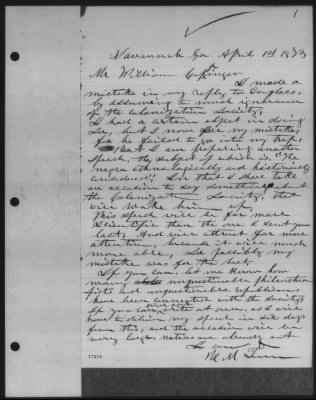 1
Savannah Ga April 1st 1883
Mr. William Coppinger
I made a
mistake in my reply to Douglass,
by assuming to much ignorance
of the Colonization Society,
I had a certain object in doing
so, but I now see my mistake,
for he failed to go into my trap.
But I am preparing another
speech, the subject of which is, "The
negro ethnologically and historically
considered". In this I shall take
an occasion to say something about
the Colonization Society, that
will wake him up,
This speech will be far more
scientific than the one I sent you
last, And will attract far more
attention, because it will be much
more able, So possibly my
mistake was for the best.
If you can, let me know how
many unquestionable philanthro
pists and unquestionable
have been connected with the Society,
If you can, write at once, as I will
have to deliver my speech in six days
from this, and the occasion will be
very large, notices are already out
I am &
H. M. Turner
17216